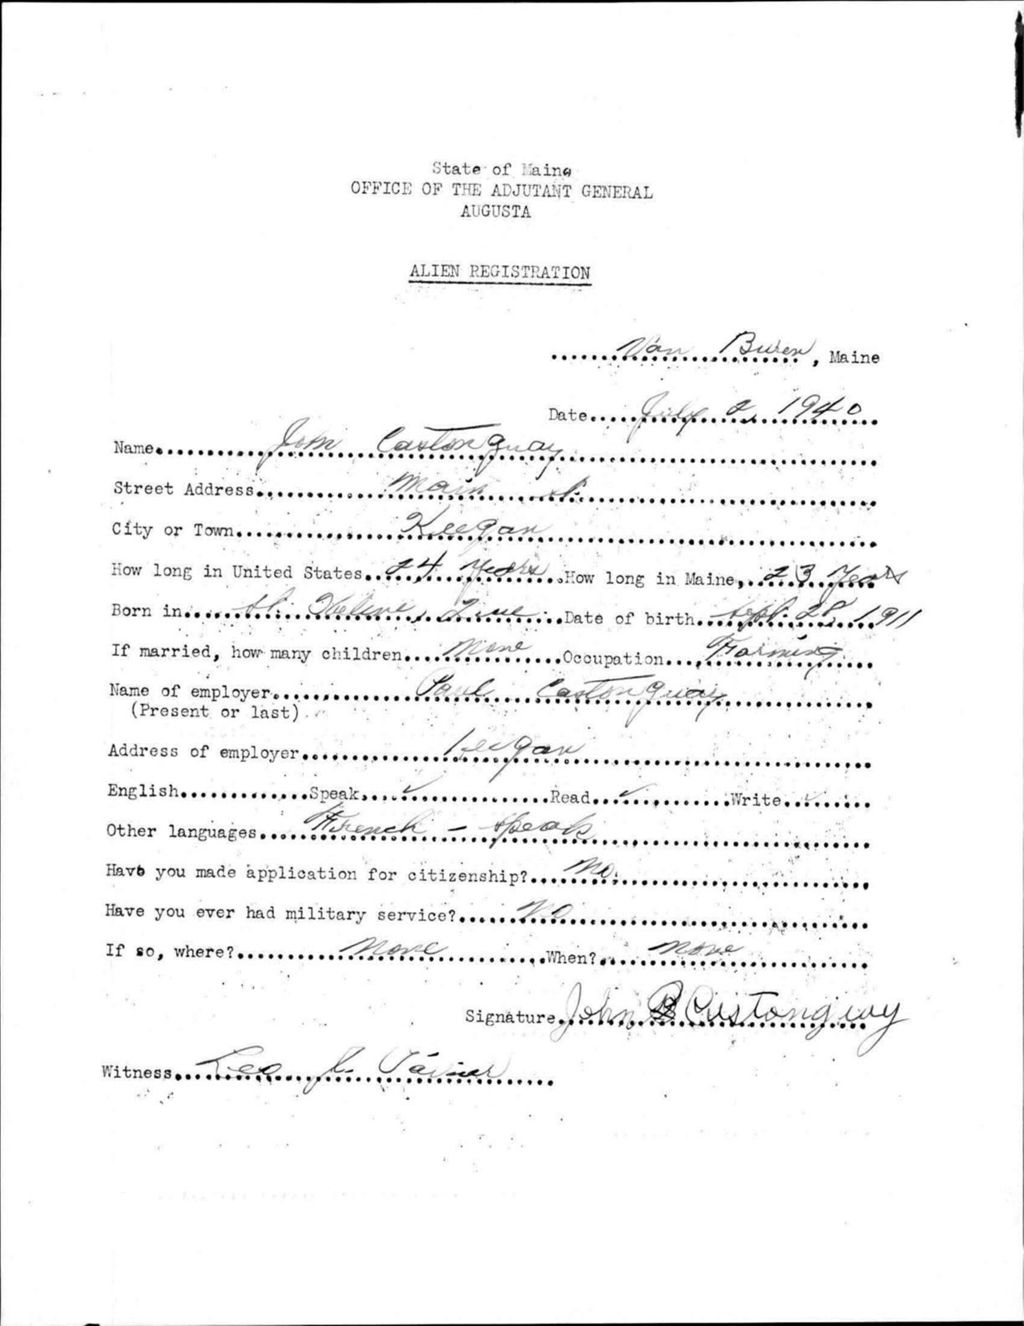 State of Maine
OFFICE OF THE ADJUTANT GENERAL
AUGUSTA
ALIEN REGISTRATION
Van Buren, Maine
Date July 2, 1940
Name John Castonguay
Street Address Main St.
City or Town Keegan
How long in United States 24 Years How long in Maine 23 Years
Born in St. Helene, Date of birth Sept. 28, 1911
If married, how many children None Occupation Farming
Name of employer Paul Castonguay
(Present or last)
Address of employer Keegan
English Speak ✓ Read ✓ Write ✓
Other languages French - Speak
Have you made application for citizenship? No.
Have you ever had military service? No
If so, where? None When? None
Signature John B Custonguay
Witness Leo J.